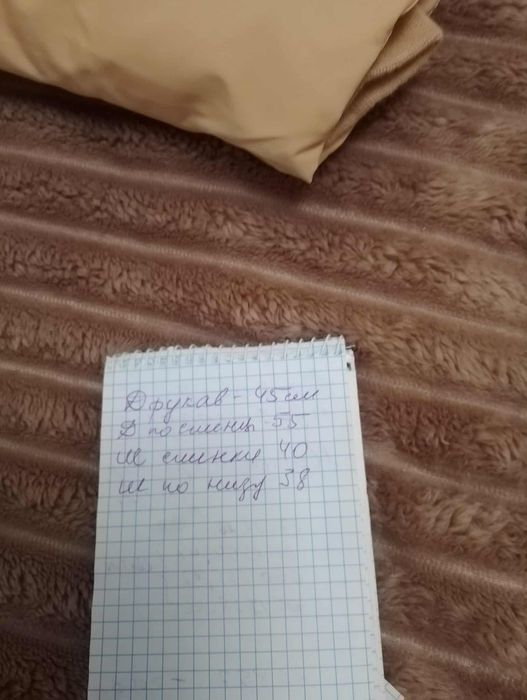 Д рукав - 45см
Д по спинці 55
Ш спинки 40
Ш по низу 38